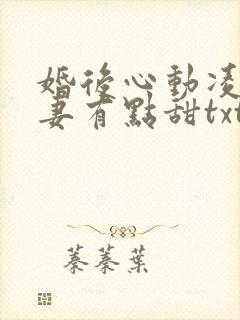 婚後心動凌
妻有點甜txt
蓁蓁葉